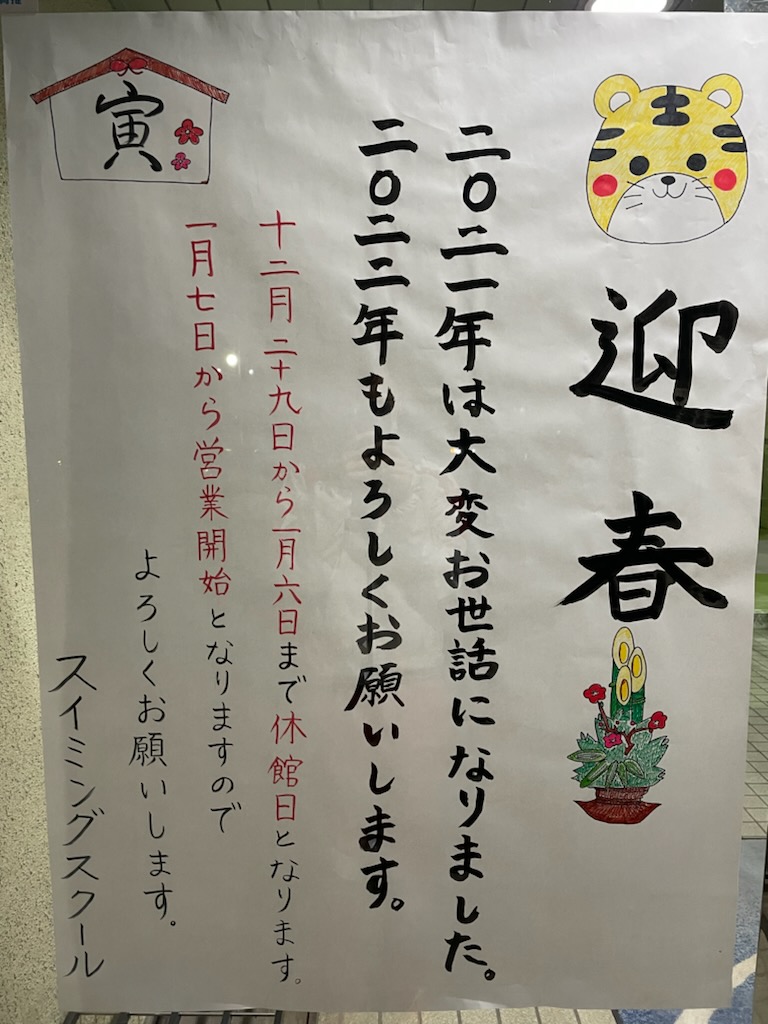 迎春
二〇二一年は大変お世話になりました。
二〇二二年もよろしくお願いします。
十二月二十九日から一月六日まで休館日となります。
一月七日から営業開始となりますので
よろしくお願いします。
スイミングスクール
寅